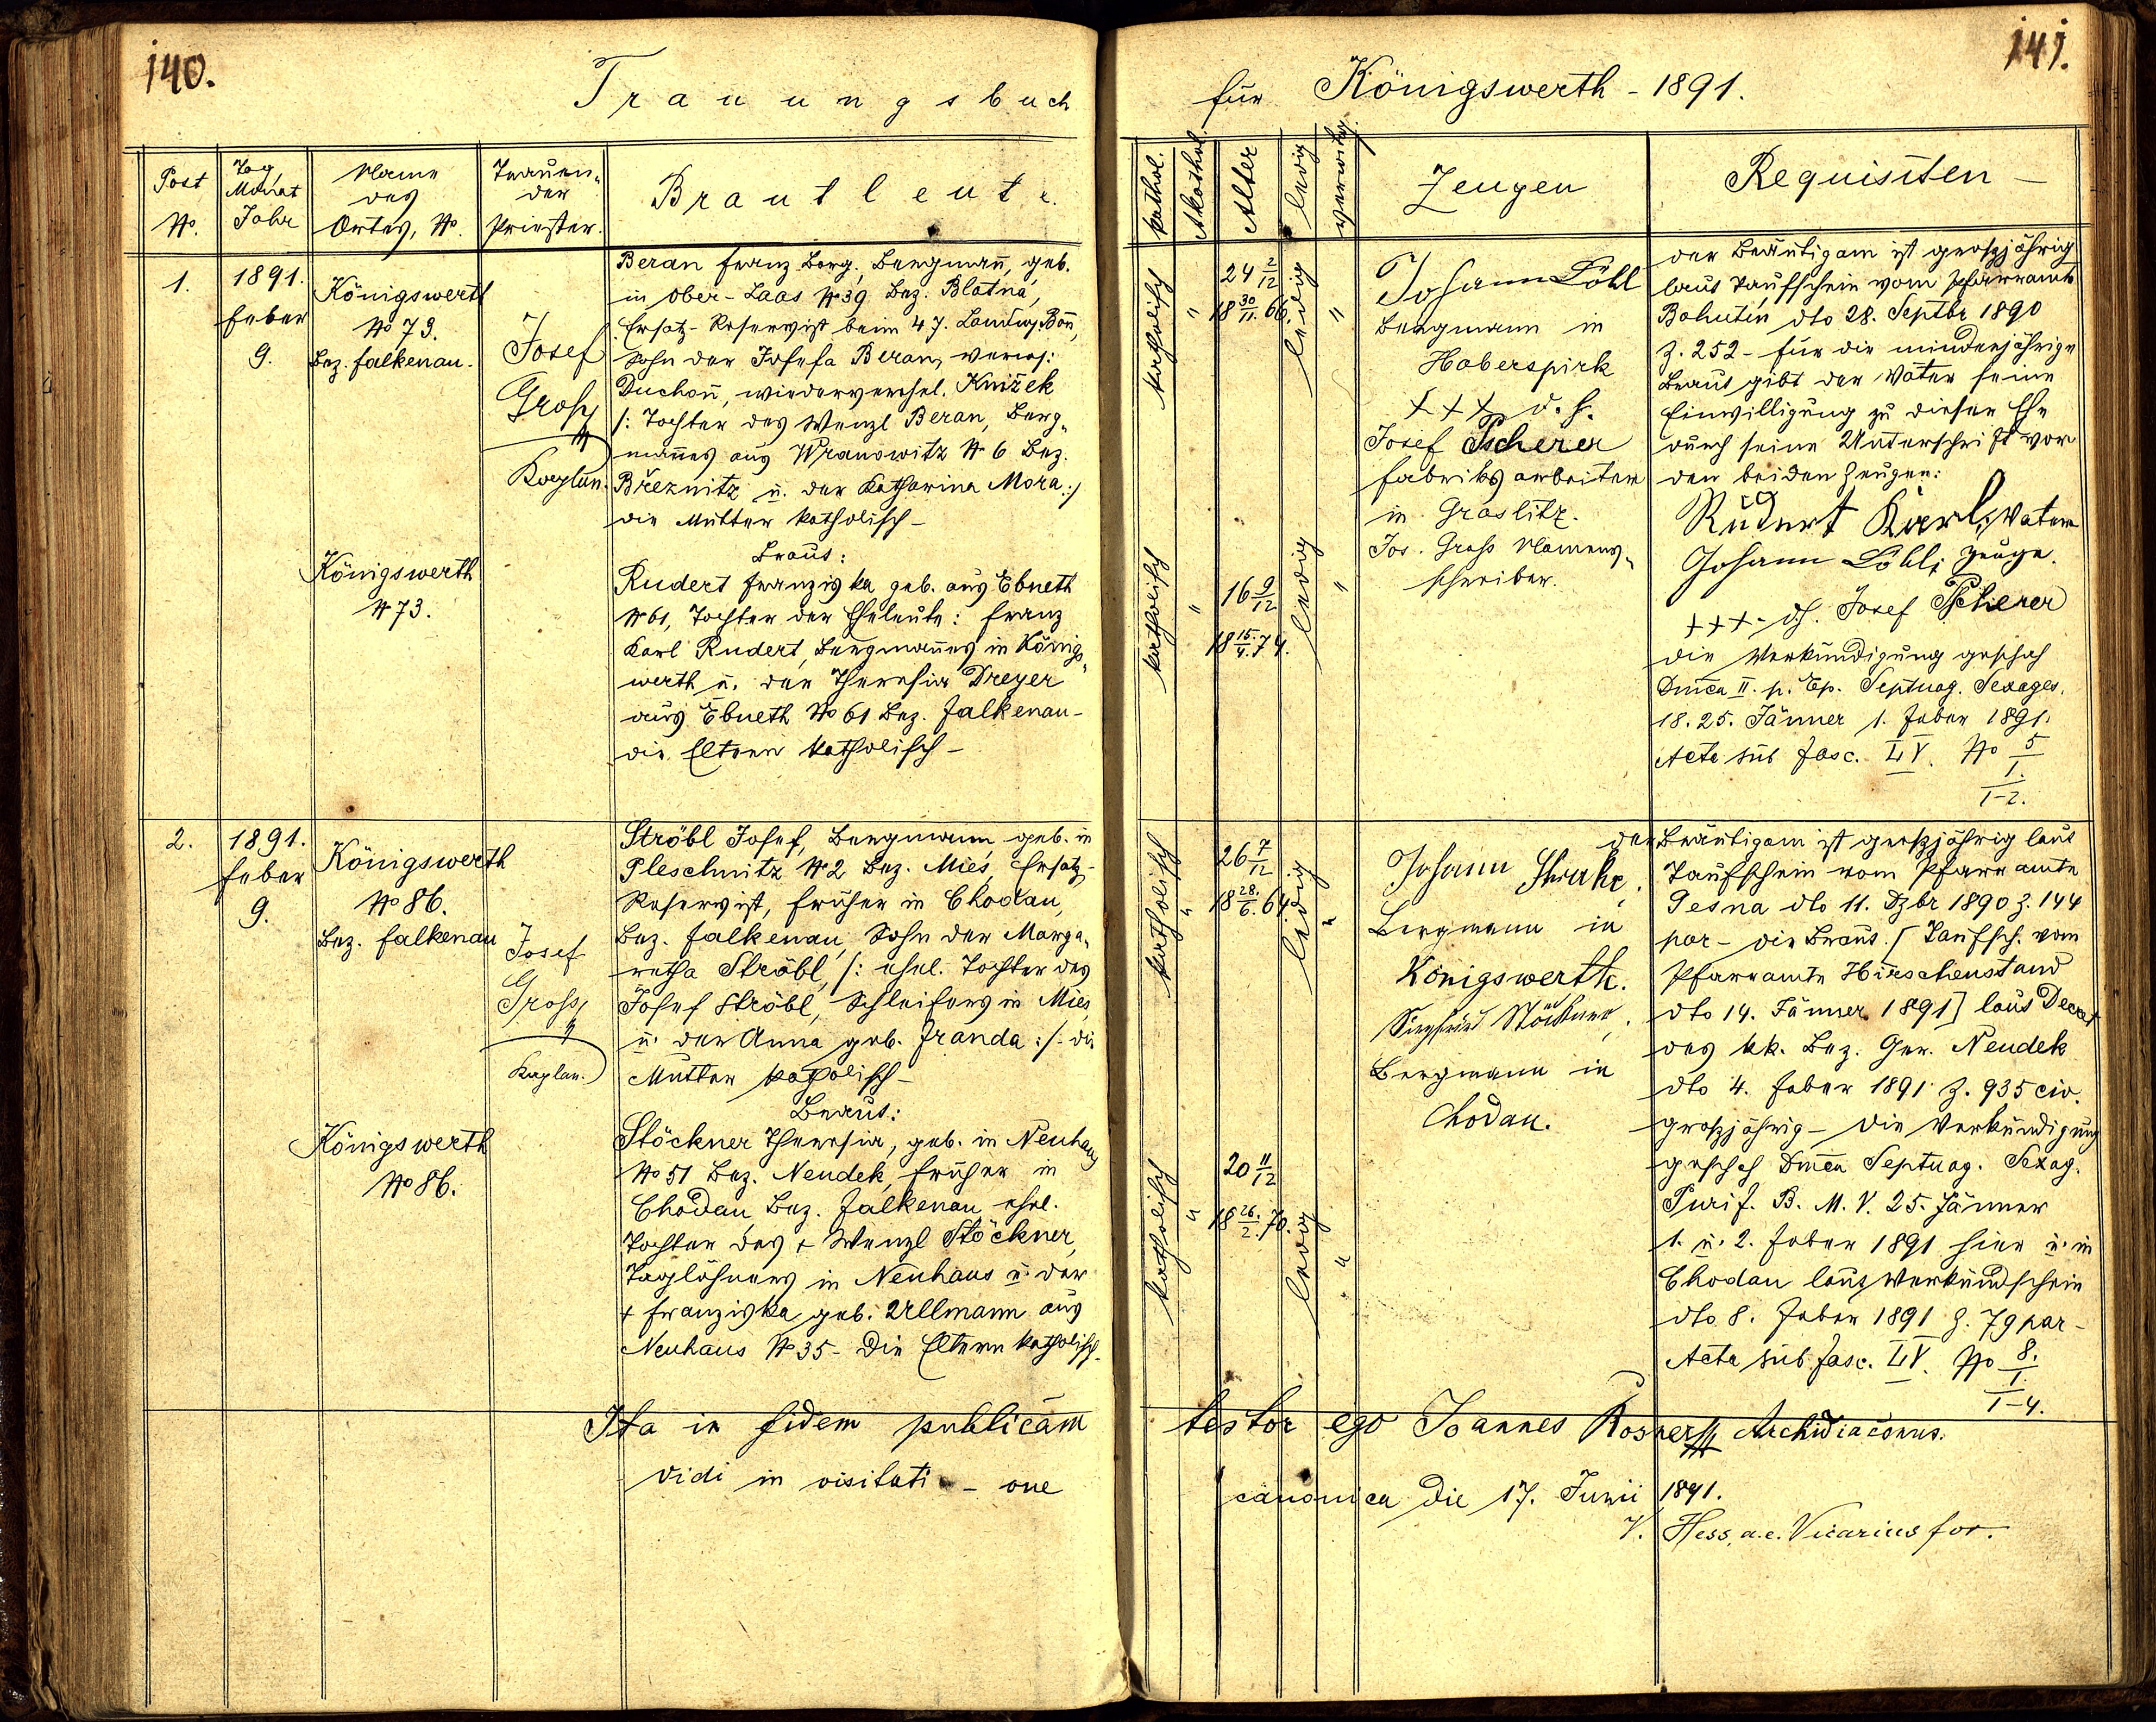 140.
Trauungsbuch
Post No.
Tag, Monat Jahr
Name des Ortes, No.
Trauender Priester.
Brautleute.
1.
1891.
Feber
9.
Königswerth
No 73.
Bez. Falkenau.
Josef
Gross
Kaplan.
Beran Franz Borg., Bergmann, geb.
in Ober-Laas No 39 Bez. Blatná,
Ersatz-Reservist beim 47. Landw. Bon,
Sohn der Josefa Beran, verw.
Duchoň, wiederverehel. Knižek
/: Tochter des Wenzl Beran, Berg„
mannes aus Wranowitz No 6 Bez.
Březnitz u. der Katharina Mora :/
die Mutter katholisch –
Königswerth
No 73.
Braut:
Rudert Franziska geb. aus Ebneth
No 61, Tochter der Eheleute: Franz
Karl Rudert, Bergmannes in Königs„
werth u. der Theresia Dreyer
aus Ebneth No 61 Bez. Falkenau –
die Eltern katholisch –
2.
1891.
Feber
9.
Königswerth
No 86.
Bez. Falkenau
Josef
Gross
Kaplan.
Ströbl Josef, Bergmann geb. in
Pleschnitz No 2 Bez. Mies, Ersatz-
Reservist, früher in Chodau,
Bez. Falkenau, Sohn der Marga„
retha Ströbl, /: ehel. Tochter des
Josef Ströbl, Schleifers in Mies,
u. der Anna geb. Franda :/ - die
Mutter katholisch –
Königswerth
No 86.
Braut:
Stöckner Theresia, geb. in Neuhaus
No 51 Bez. Neudek, früher in
Chodau, Bez. Falkenau ehel.
Tochter des + Wenzl Stöckner,
Taglöhners in Neuhaus u. der
+ Franziska geb. Ullmann aus
Neuhaus No 35 - Die Eltern katholisch.
Ita in fidem publicam
vidi in visitati - one
141.
für Königswerth - 1891.
kathol.
Akathol.
Alter
ledig
verwitw.
Zeugen
Requisiten –
katholisch
"
24 2/12
18 30/11. 66.
ledig
"
Johann Löbl
Bergmann in
Haberspirk
+++ d. h.
Josef Pscherer
Fabriksarbeiter
in Graslitz.
Jos. Gross Namens„
schreiber.
der Bräutigam ist grossjährig
laut Taufschein vom Pfarramte
Bohutín dto 28. Septbr 1890
Z. 252 - für die minderjährige
Braut gibt der Vater seine
Einwilligung zu dieser Ehe
durch seine Unterschrift vor
den beiden Zeugen:
Rudert Karl, Vater
Johann Löbl, Zeuge.
+++ - dh. Josef Pscherer
die Verkündigung geschah
Dmca II. p. Ep. Septuag. Sexages.
18. 25. Jänner 1. Feber 1891.
Acta sub fasc. LV. No 5
1.
1-2.
katholisch
"
16 9/12
18 15./4. 74.
ledig
"
katholisch
"
26 7/12
18 28./6. 64.
ledig
"
Johann
Bergmann in
Königswerth.
Siegfried Stöckner,
Bergmann in
Chodau.
der Bräutigam ist grossjährig laut
Taufschein vom Pfarramte
Tesna dto 11. Dzbr 1890 Z. 144
par - die Braut [Taufsch. vom
Pfarramte Hirschenstand
dto 14. Jänner 1891] laut Decret
des kk. Bez. Ger. Neudek
dto 4. Feber 1891 Z. 935 civ.
grossjährig - die Verkündigung
geschah Dmca Septuag. Sexag.
Purif. B. M. V. 25. Jänner
1. u. 2. Feber 1891 hier u. in
Chodau laut Verkündschein
dto 8. Feber 1891 Z. 79 par -
Acta sub fasc. LV. No 8.
1.
1-4.
katholisch
"
20 11/12
18 26./2. 70.
ledig
"
testor ego Joannes Rosner Archidiaconus.
canonica die 17. Junii 1891.
V. Hess, a. e. Vicarius for.